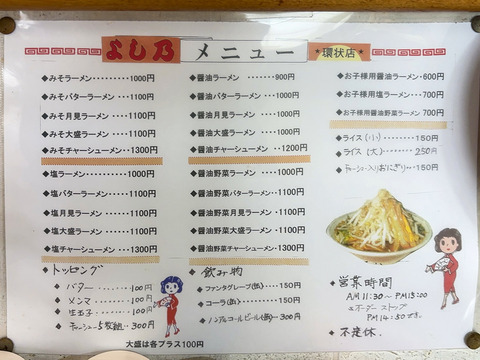 よし乃 メニュー ★環状店★
◆みそラーメン・・・・・・・・・1000円
◆みそバターラーメン・・・・1100円
◆みそ月見ラーメン・・・・・1100円
◆みそ大盛ラーメン・・・・・1100円
◆みそチャーシューメン・・・1300円
◆塩ラーメン・・・・・・・・・1000円
◆塩バターラーメン・・・・・1100円
◆塩月見ラーメン・・・・・・1100円
◆塩大盛ラーメン・・・・・・1100円
◆塩チャーシューメン・・・1300円
◆トッピング
・バター・・・・100円
・メンマ・・・・100円
・生玉子・・・・100円
・チャーシュー5枚組・・・300円
大盛は各プラス100円
◆醤油ラーメン ・・・・・・・900円
◆醤油バターラーメン・・・・1000円
◆醤油月見ラーメン・・・・・1000円
◆醤油大盛ラーメン・・・・・1000円
◆醤油チャーシューメン・・1200円
◆醤油野菜ラーメン・・・・・1000円
◆醤油野菜バターラーメン・1100円
◆醤油野菜月見ラーメン・1100円
◆醤油野菜大盛ラーメン・・1100円
◆醤油野菜チャーシューメン・・1300円
◆飲み物
・ファンタグレープ(缶)・・・・150円
・コーラ(缶)・・・・・150円
・ノンアルコールビール(缶)・・300円
◆お子様用醤油ラーメン・・600円
◆お子様用塩ラーメン・・・700円
◆お子様用醤油野菜ラーメン・700円
◆ライス(小)・・・・・・・150円
◆ライス(大)・・・・・・250円
◆チャーシュー入りおにぎり・・・150円
◆営業時間
AM11:30〜PM15:00
オーダーストップ
PM14:50です。
◆不定休.